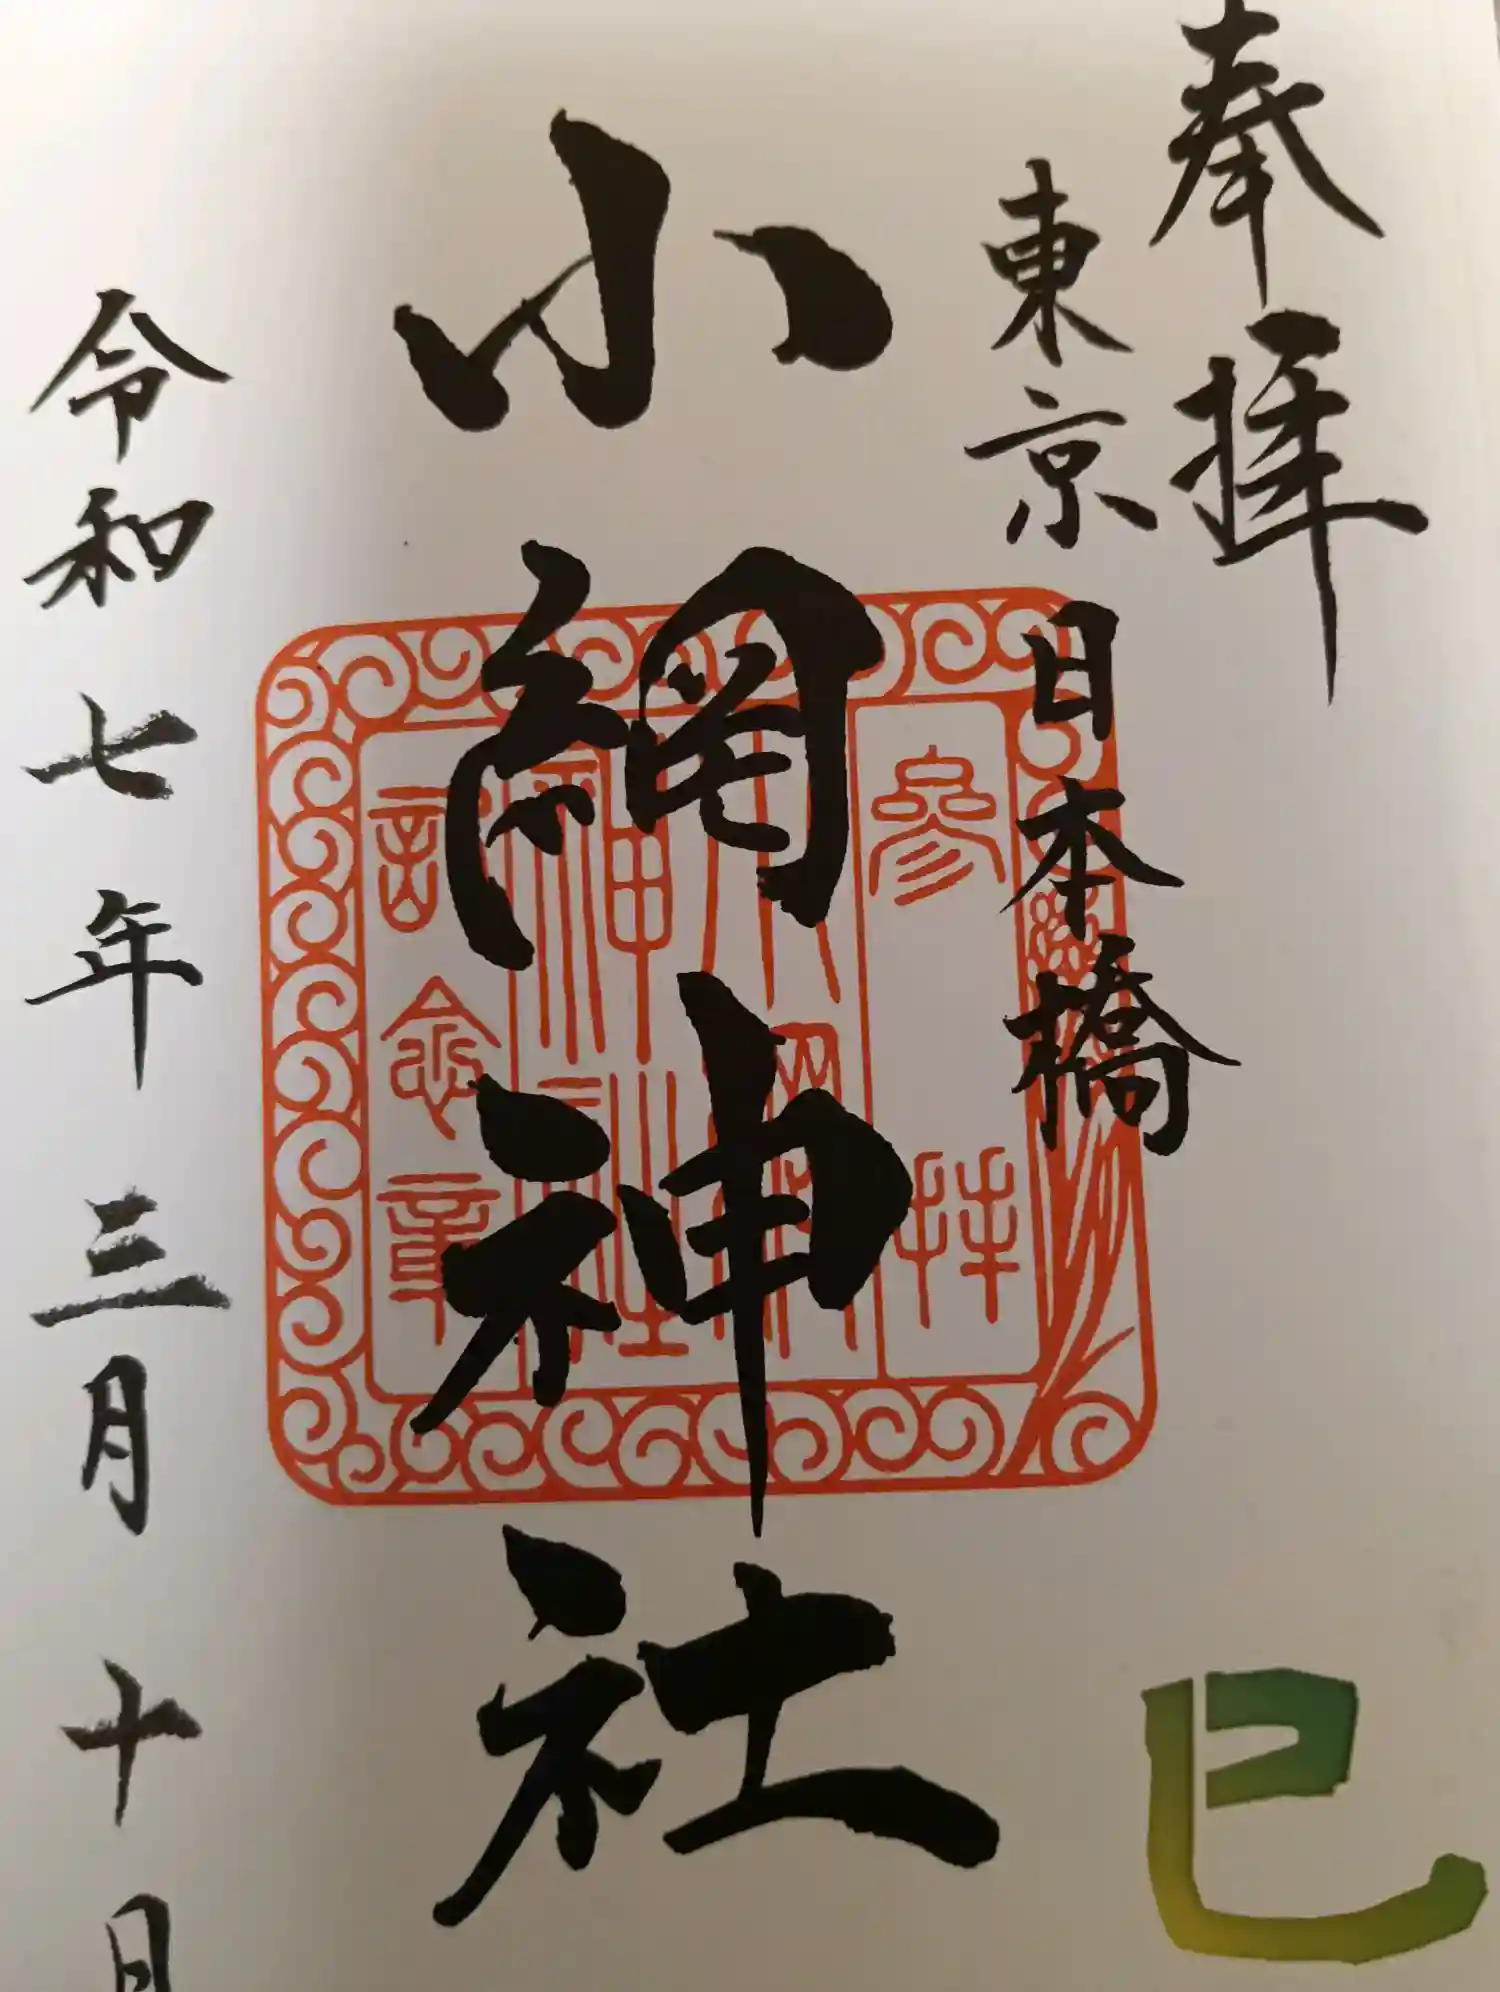 奉拝
東京日本橋
小網神社
參拝
小網
神社
記念章
令和七年三月十日
巳